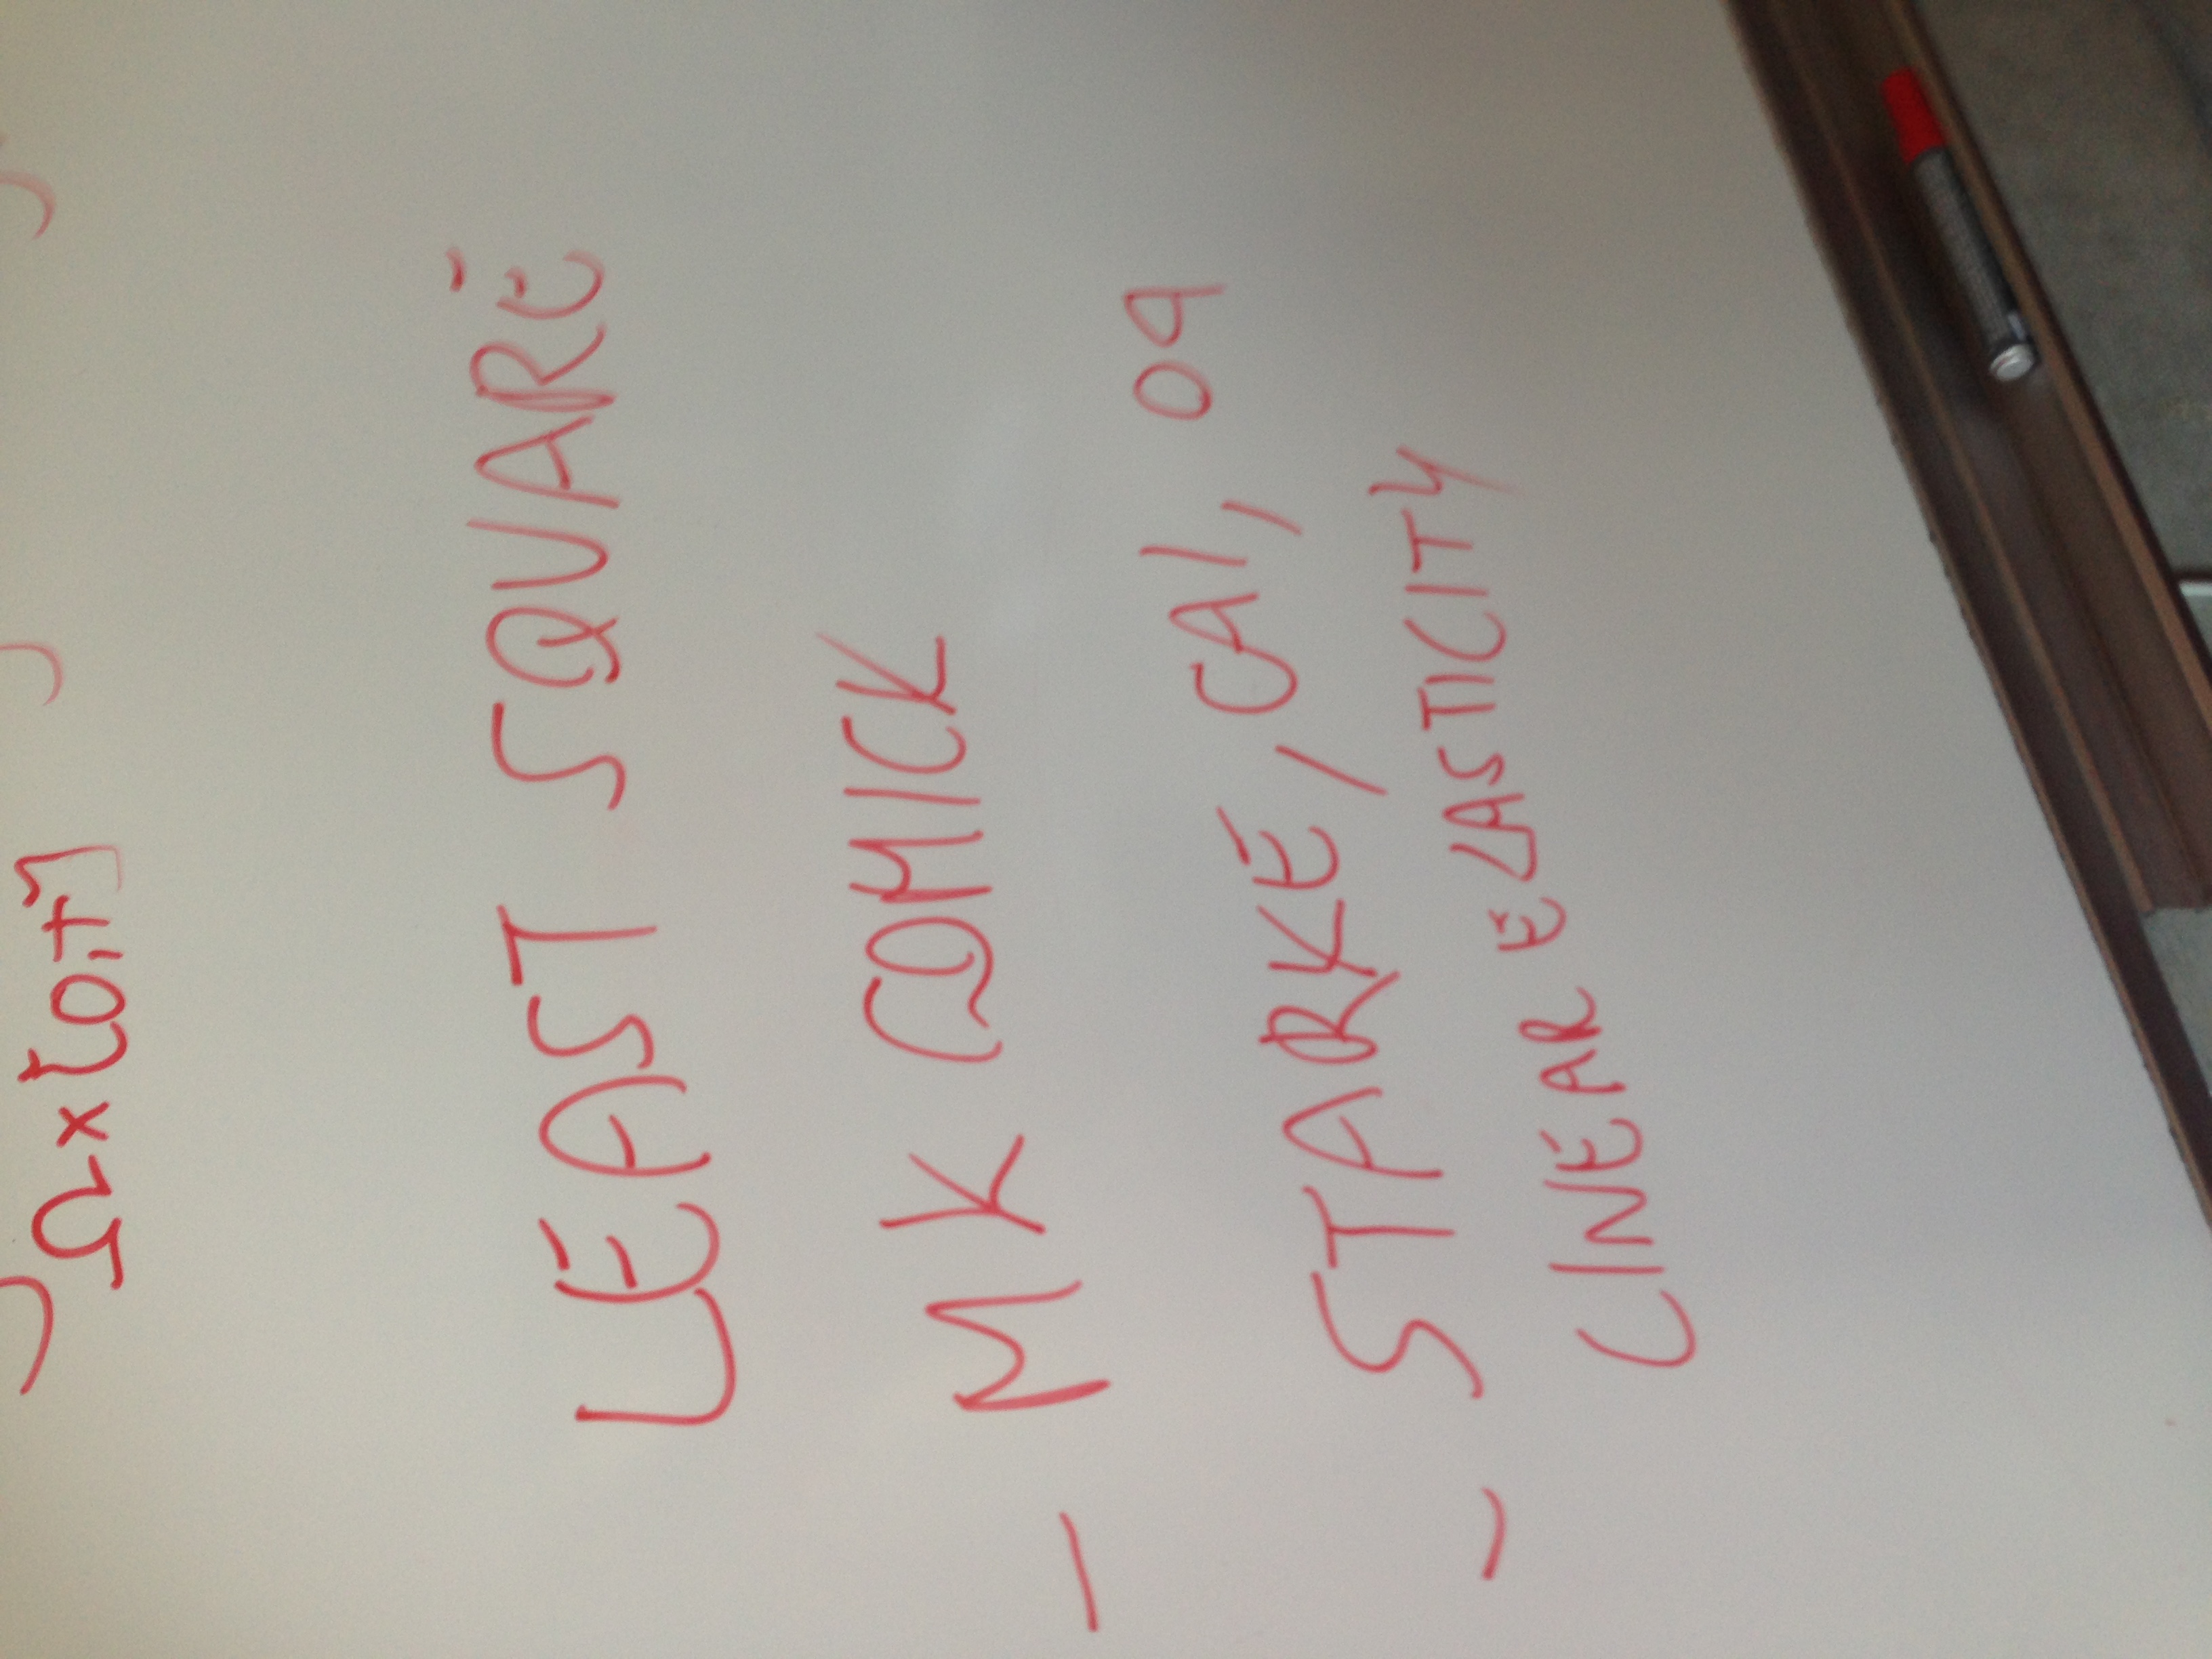 Ω×[0,T]
LEAST SQUARE
- MK COMICK
- STARKE, CAI, 04
LINEAR ELASTICITY